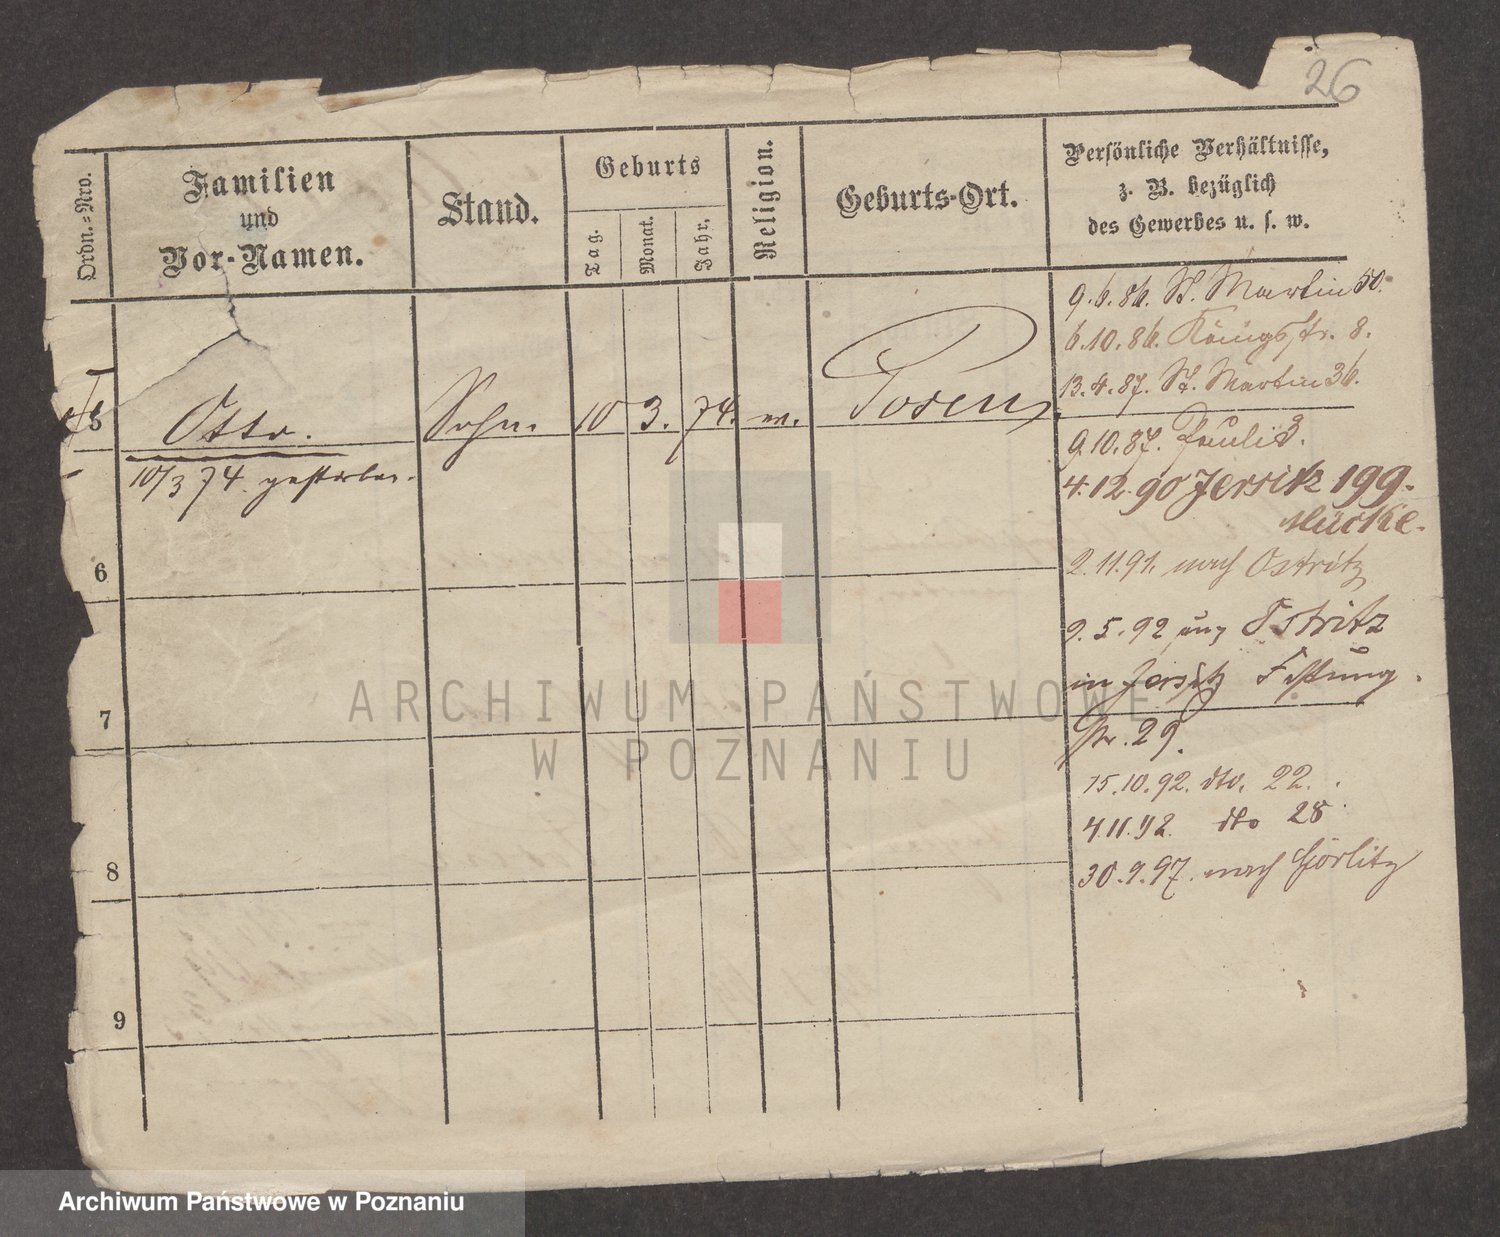 26
Ordn.=Nro.
Familien
und
Vor-Namen.
Stand.
Geburts
Tag.
Monat.
Jahr.
Religion.
Geburts-Ort.
Persönliche Verhältnisse,
z. B. bezüglich
des Gewerbes u. s. w.
9.6.86. St. Martin 50.
6.10.86. Königsstr. 8.
13.4.87. St. Martin 36.
5 Otto. Sohn. 10 3. 74. ev. Posen
10/3 74. gestorben.
9.10.87. Pauli 3.
4.12.90 Jersitz 199.
Mücke.
6
2.11.91. nach Ostritz
9.5.92 aus Ostritz
in Jersitz Festung
7
Str. 29.
15.10.92. dto. 22.
4.11.92. dto 28
8
30.9.97. nach Görlitz
9
ARCHIWUM PAŃSTWOWE
W POZNANIU
Archiwum Państwowe w Poznaniu